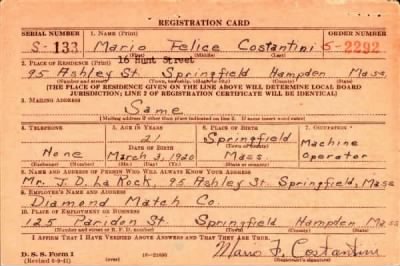 REGISTRATION CARD
SERIAL NUMBER 1. NAME (Print) ORDER NUMBER
S-133 Mario Felice Costantini S-2292
(First) (Middle) (Last)
2. PLACE OF RESIDENCE (Print) 16 Hunt Street
95 Ashley St. Springfield Hampden Mass.
(Number and street) (Town, township, village, or city) (County) (State)
[THE PLACE OF RESIDENCE GIVEN ON THE LINE ABOVE WILL DETERMINE LOCAL BOARD
JURISDICTION; LINE 2 OF REGISTRATION CERTIFICATE WILL BE IDENTICAL]
3. MAILING ADDRESS
Same
[Mailing address if other than place indicated on line 2. If same insert word same]
4. TELEPHONE 5. AGE IN YEARS 6. PLACE OF BIRTH 7. OCCUPATION
21 Springfield Machine
DATE OF BIRTH (Town or county)
None March 3, 1920 Mass. Operator
(Exchange) (Number) (Mo.) (Day) (Yr.) (State or country)
8. NAME AND ADDRESS OF PERSON WHO WILL ALWAYS KNOW YOUR ADDRESS
Mr. J. D. La Rock, 95 Ashley St. Springfield, Mass
9. EMPLOYER'S NAME AND ADDRESS
Diamond Match Co.
10. PLACE OF EMPLOYMENT OR BUSINESS
125 Paridon St. Springfield Hampden Mass
(Number and street or R. F. D. number) (Town) (County) (State)
I AFFIRM THAT I HAVE VERIFIED ABOVE ANSWERS AND THAT THEY ARE TRUE.
D. S. S. Form 1 Mario F. Costantini
(Revised 6-9-41) 16-21630